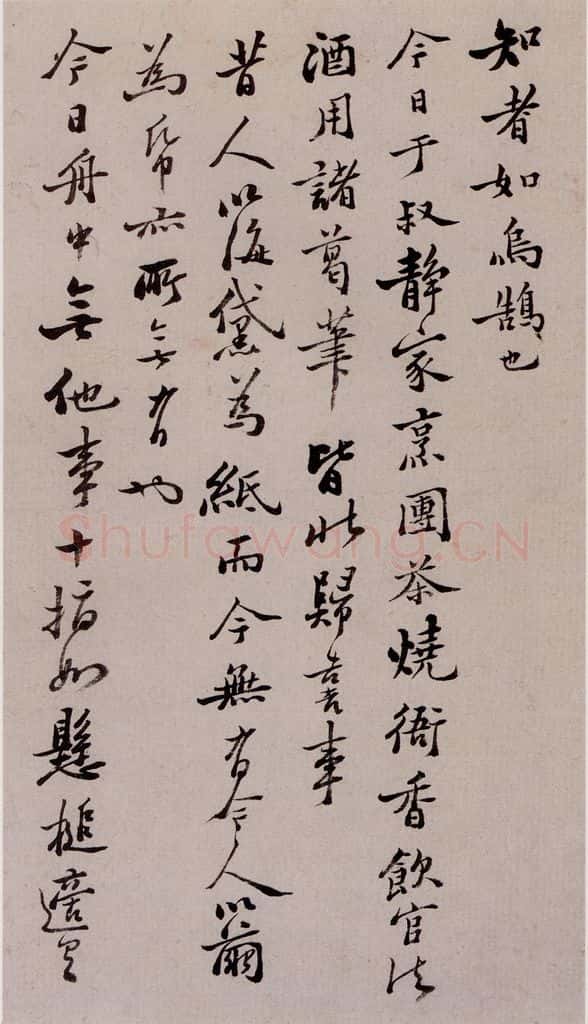 知者如烏鵲也
今日于叔静家烹團茶燒衙香飲官法
酒用諸葛筆皆北歸喜事
昔人以海黛為紙而今無有今人以
為帋亦所無有也
今日舟中無他事十指如懸槌適
Shufawang.CN